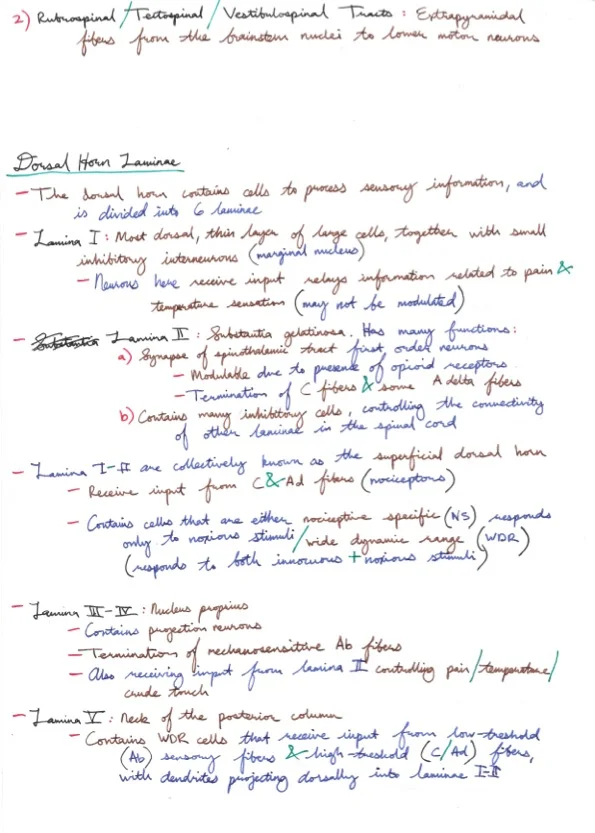 2) Rubrospinal/Tectospinal/Vestibulospinal Tracts: Extrapyramidal
fibers from the brainstem nuclei to lower motor neurons
Dorsal Horn Laminae
- The dorsal horn contains cells to process sensory information, and
is divided into 6 laminae
- Lamina I: Most dorsal, thin layer of large cells, together with small
inhibitory interneurons (marginal nucleus)
- Neurons here receive input relays information related to pain &
temperature sensation (may not be modulated)
- Substantia Lamina II: Substantia gelatinosa. Has many functions:
a) Synapse of spinothalamic tract first order neurons
- Modulable due to presence of opioid receptors
- Termination of C fibers & some A delta fibers
b) Contains many inhibitory cells, controlling the connectivity
of other laminae in the spinal cord
- Lamina I-II are collectively known as the superficial dorsal horn
- Receive input from C & Ad fibers (nociceptors)
- Contains cells that are either nociceptive specific (NS) responds
only to noxious stimuli/wide dynamic range (WDR)
(responds to both innocuous + noxious stimuli)
- Lamina III-IV: Nucleus proprius
- Contains projection neurons
- Termination of mechanosensitive Ab fibers
- Also receiving input from lamina II controlling pain/temperature/
crude touch
- Lamina V: Neck of the posterior column
- Contains WDR cells that receive input from low-treshold
(Ab) sensory fibers & high-treshold (C/Ad) fibers,
with dendrites projecting dorsally into laminae I-II